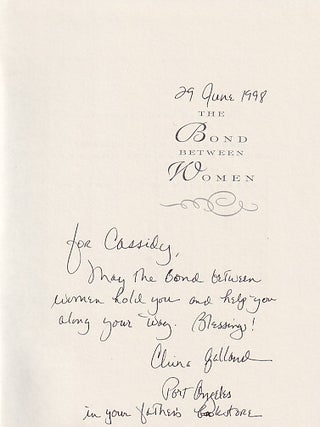 29 June 1998
THE
BOND
BETWEEN
WOMEN
for Cassidy,
May the bond between
women hold you and help you
along your way. Blessings!
China Galland
Port Angeles
in your father's bookstore